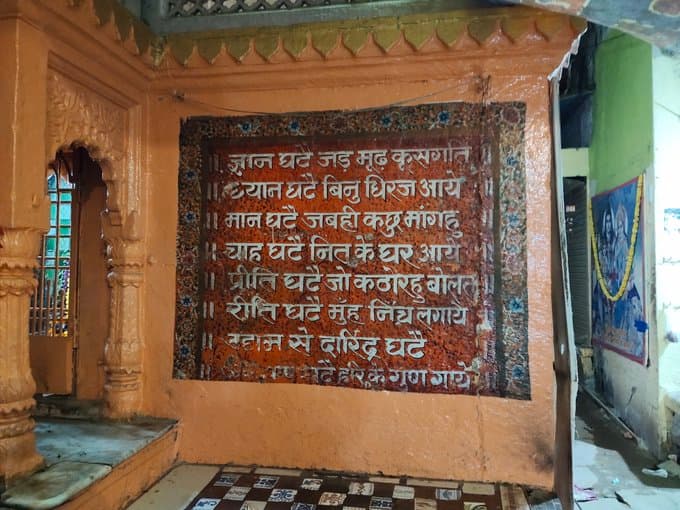 || ज्ञान घटै जड़ मूढ़ कुसंगति ||
|| ध्यान घटै बिनु धिरज आये
|| मान घटै जबही कछु मांगहु
|| चाह घटै नित के घर आये
|| प्रीति घटै जो कठोरहु बोलत
|| रीति घटै मुँह निच लगाये
|| से दारिद्र घटै
घटै हरि के गुण गाये